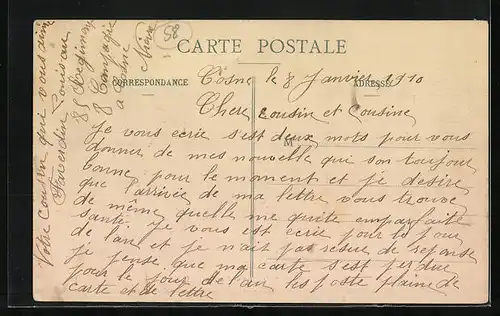 58
CARTE POSTALE
CORRESPONDANCE
ADRESSE
M
Cosne le 8 Janvier 1910
Chere cousin et Cousine
Je vous ecrie s'est deux mots pour vous
donner de mes nouvelle qui son toujour
bonne pour le moment et je desire
que l'arrivée de ma lettre vous trouve
de même quelle me quite emparfaite
santé. Je vous est ecrie pour le jour
de l'an et je n'ait pas resue de reponse
je pense que ma carte s'est perdue
pour le jour de l'an les poste plaine de
carte et de lettre
Votre Cousin qui vous dime
Faverdin Louis au
85 Regiment
8 Compagie
a Cosne
Nievre